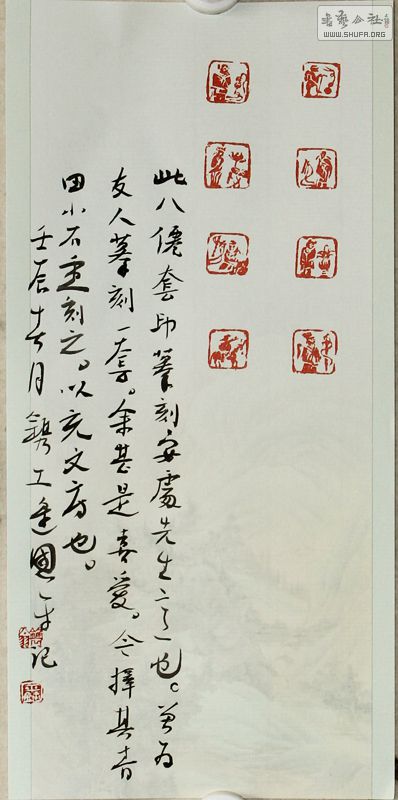 书艺公社
WWW.SHUFA.ORG
此八僊套印摹刻安處先生之一也。曾为
友人摹刻一套。余甚是喜爱。今择其青
田小石重刻之。以充文房也。
壬辰春月鐫工逢國平记